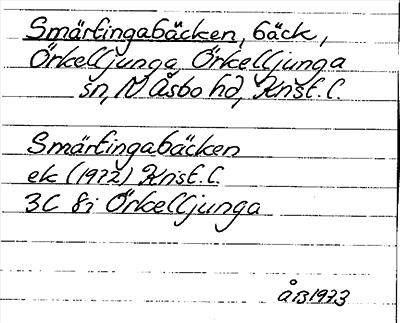 Smärtingabäcken, bäck,
Örkelljunga, Örkelljunga
sn, N Åsbo hd, Knst. L.
Smärtingabäcken
ek (1972) Knst. L.
3C 8i Örkelljunga
ÅB 1973